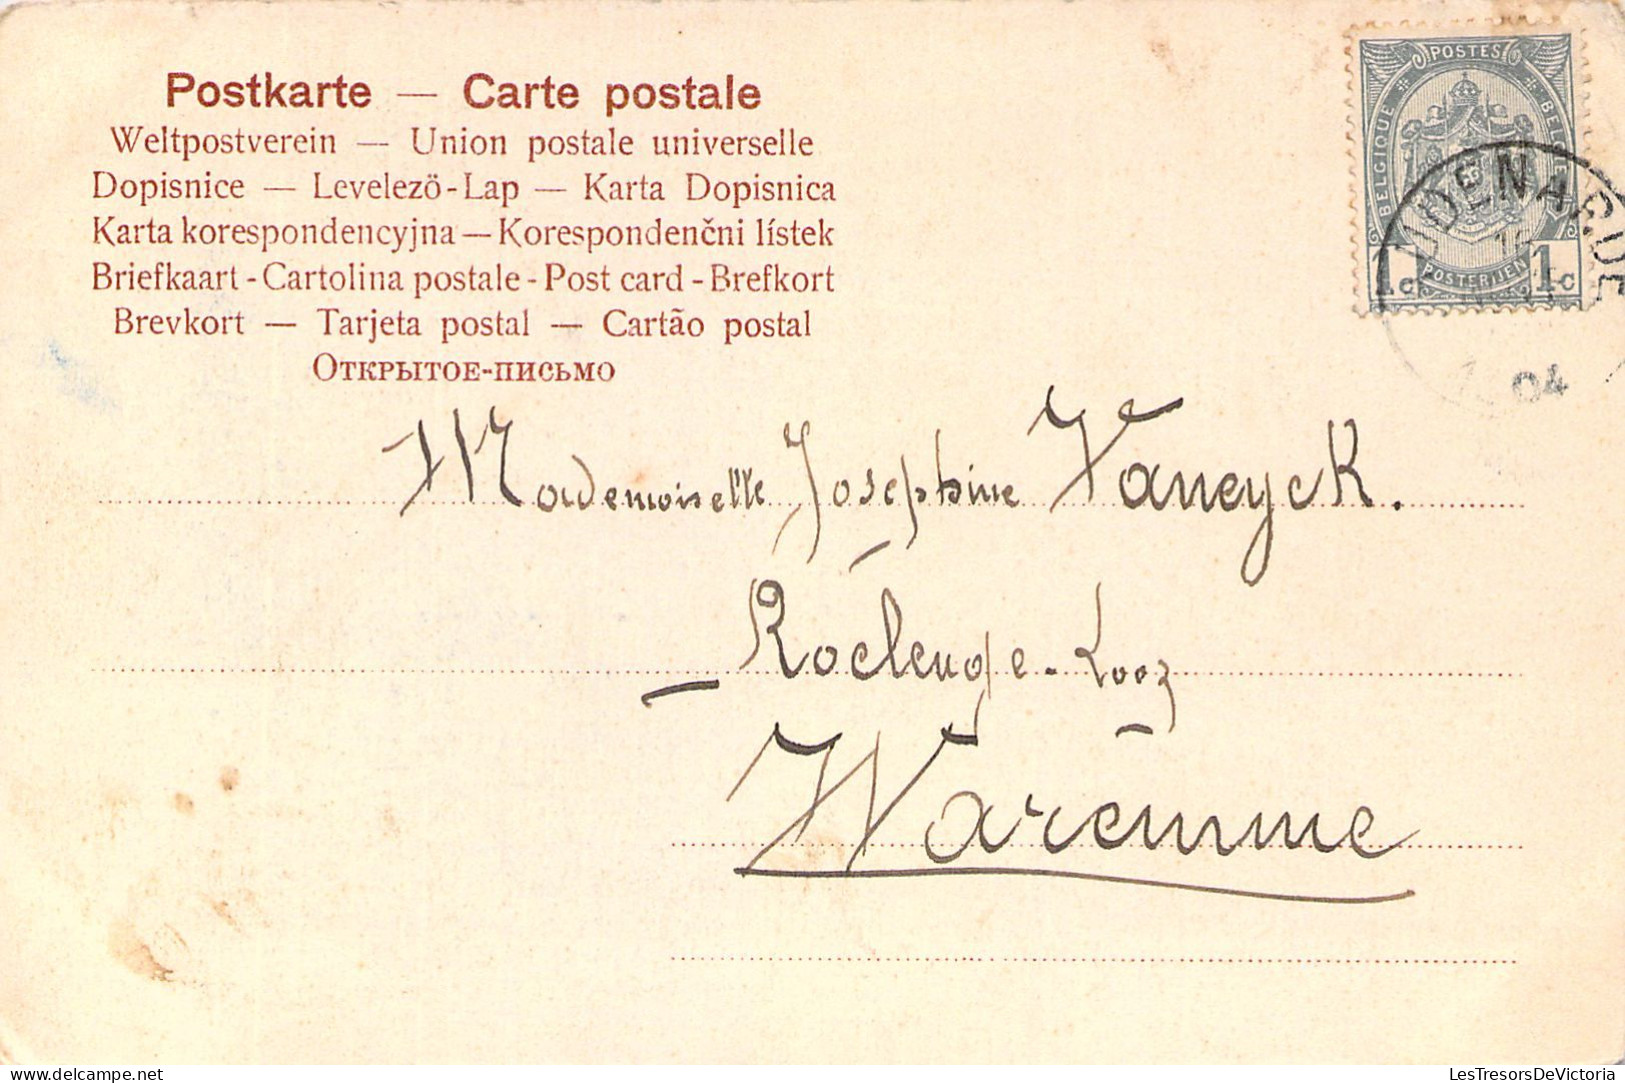 Postkarte — Carte postale
Weltpostverein — Union postale universelle
Dopisnice — Levelezö-Lap — Karta Dopisnica
Karta korespondencyjna — Korespondenčni lístek
Briefkaart - Cartolina postale - Post card - Brefkort
Brevkort — Tarjeta postal — Cartão postal
Открытое-письмо
POSTES
BELGIQUE
BELGIE
POSTERIJEN
1c 1c
AUDENARDE
04
Mademoiselle Josephine Vaneyck.
Roclenge-Looz
Waremme
LesTresorsDeVictoria